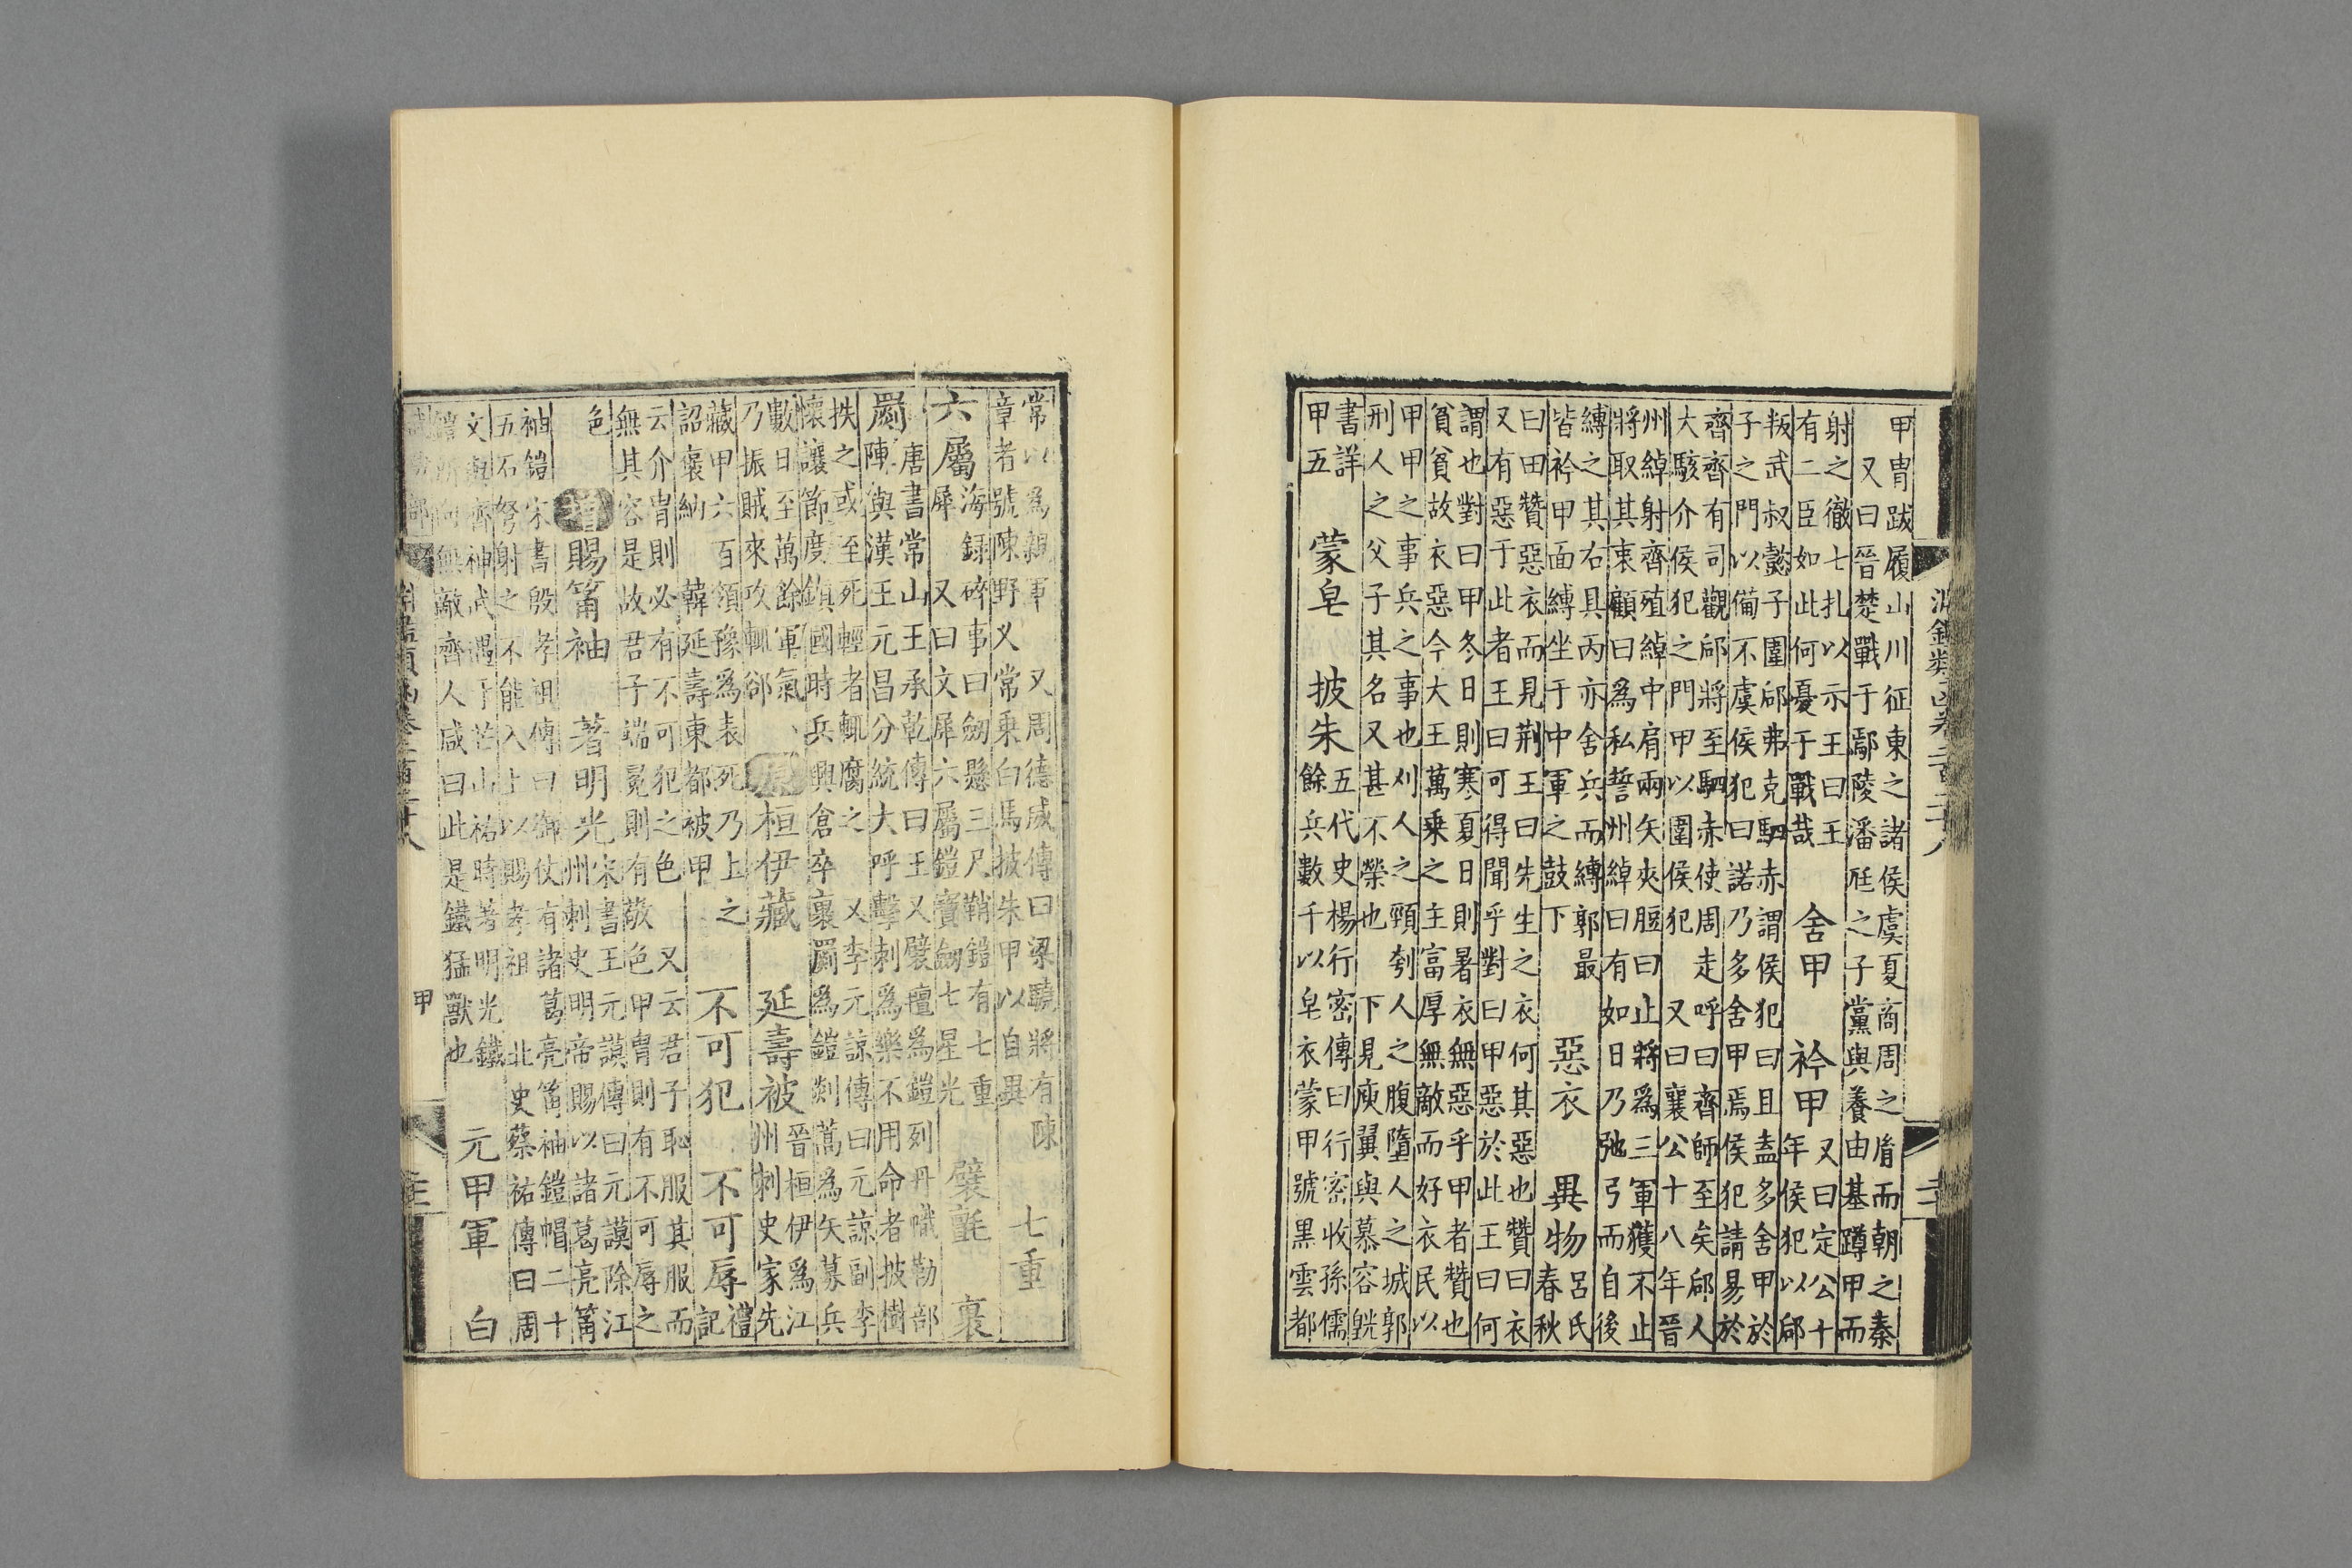 淵鑑類函卷二百二十八
甲胄跋履山川征東之諸侯虞夏商周之胤而朝之秦
又曰晉楚戰于鄢陵潘尫之子黨與養由基蹲甲而
射之徹七扎以示王曰王
有二臣如此何憂于戰哉
舍甲 衿甲
又曰定公十
年侯犯以郈
叛武叔懿子圍郈弗克駟赤謂侯犯曰且盍多舍甲於
子之門以備不虞侯犯曰諾乃多舍甲焉侯犯請易於
齊齊有司觀郈將至駟赤使周走呼曰齊師至矣郈人
大駭介侯犯之門甲以圍侯犯 又曰襄公十八年晉
州綽射齊殖綽中肩兩矢夾脰曰止將為三軍獲不止
將取其衷顧曰為私誓州綽曰有如日乃弛弓而自後
縛之其右具丙亦舍兵而縛郭最
皆衿甲面縛坐于中軍之鼓下
惡衣 異物
呂氏
春秋
曰田贊惡衣而見荆王曰先生之衣何其惡也贊曰衣
又有惡于此者王曰可得聞乎對曰甲惡於此王曰何
謂也對曰甲冬日則寒夏日則暑衣無惡乎甲者贊也
貧貧故衣惡今大王萬乘之主富厚無敵而好衣民以
甲甲之事兵之事也刈人之頸刳人之腹墮人之城郭
刑人之父子其名又甚不榮也 下見庾翼與慕容皝
書詳
甲五
蒙皂 披朱
五代史楊行密傳曰行密收孫儒
餘兵數千以皂衣蒙甲號黑雲都
常以為親軍 又周德威傳曰梁驍將有陳
章者號陳野义常乘白馬披朱甲以自異
七重
六屬
海録碎事曰劒懸三尺鞘鎧有七重
犀 又曰文犀六屬鎧寶劒七星光
襞氈 裹
罽
唐書常山王承乾傳曰王又襞氊為鎧列丹幟勒部
陳與漢王元昌分統大呼擊刺為樂不用命者披樹
抶之或至死輕者輒腐之 又李元諒傳曰元諒副李
懷讓節度鎮國時兵興倉卒裹罽為鎧剡蒿為矢募兵
數日至萬餘軍氣
乃振賊來攻輒卻
原 桓伊藏 延壽被
晉桓伊為江
州刺史家先
藏甲六百領豫為表死乃上之
詔褒納 韓延壽東都被甲
不可犯 不可辱
禮
記
云介胄則必有不可犯之色 又云君子恥服其服而
無其容是故君子端冕則有敬色甲胄則有不可辱之
色
增 賜筩袖 著明光
宋書王元謨傳曰元謨除江
州刺史明帝賜以諸葛亮筩
袖鎧宋書殷孝祖傳曰御仗有諸葛亮筩袖鎧帽二十
五石弩射之不能入上以賜孝祖 北史蔡祐傳曰周
文與齊神武遇于芒山祐時著明光鐵
鎧所向無敵齊人咸曰此是鐵猛獸也
元甲軍 白
甲